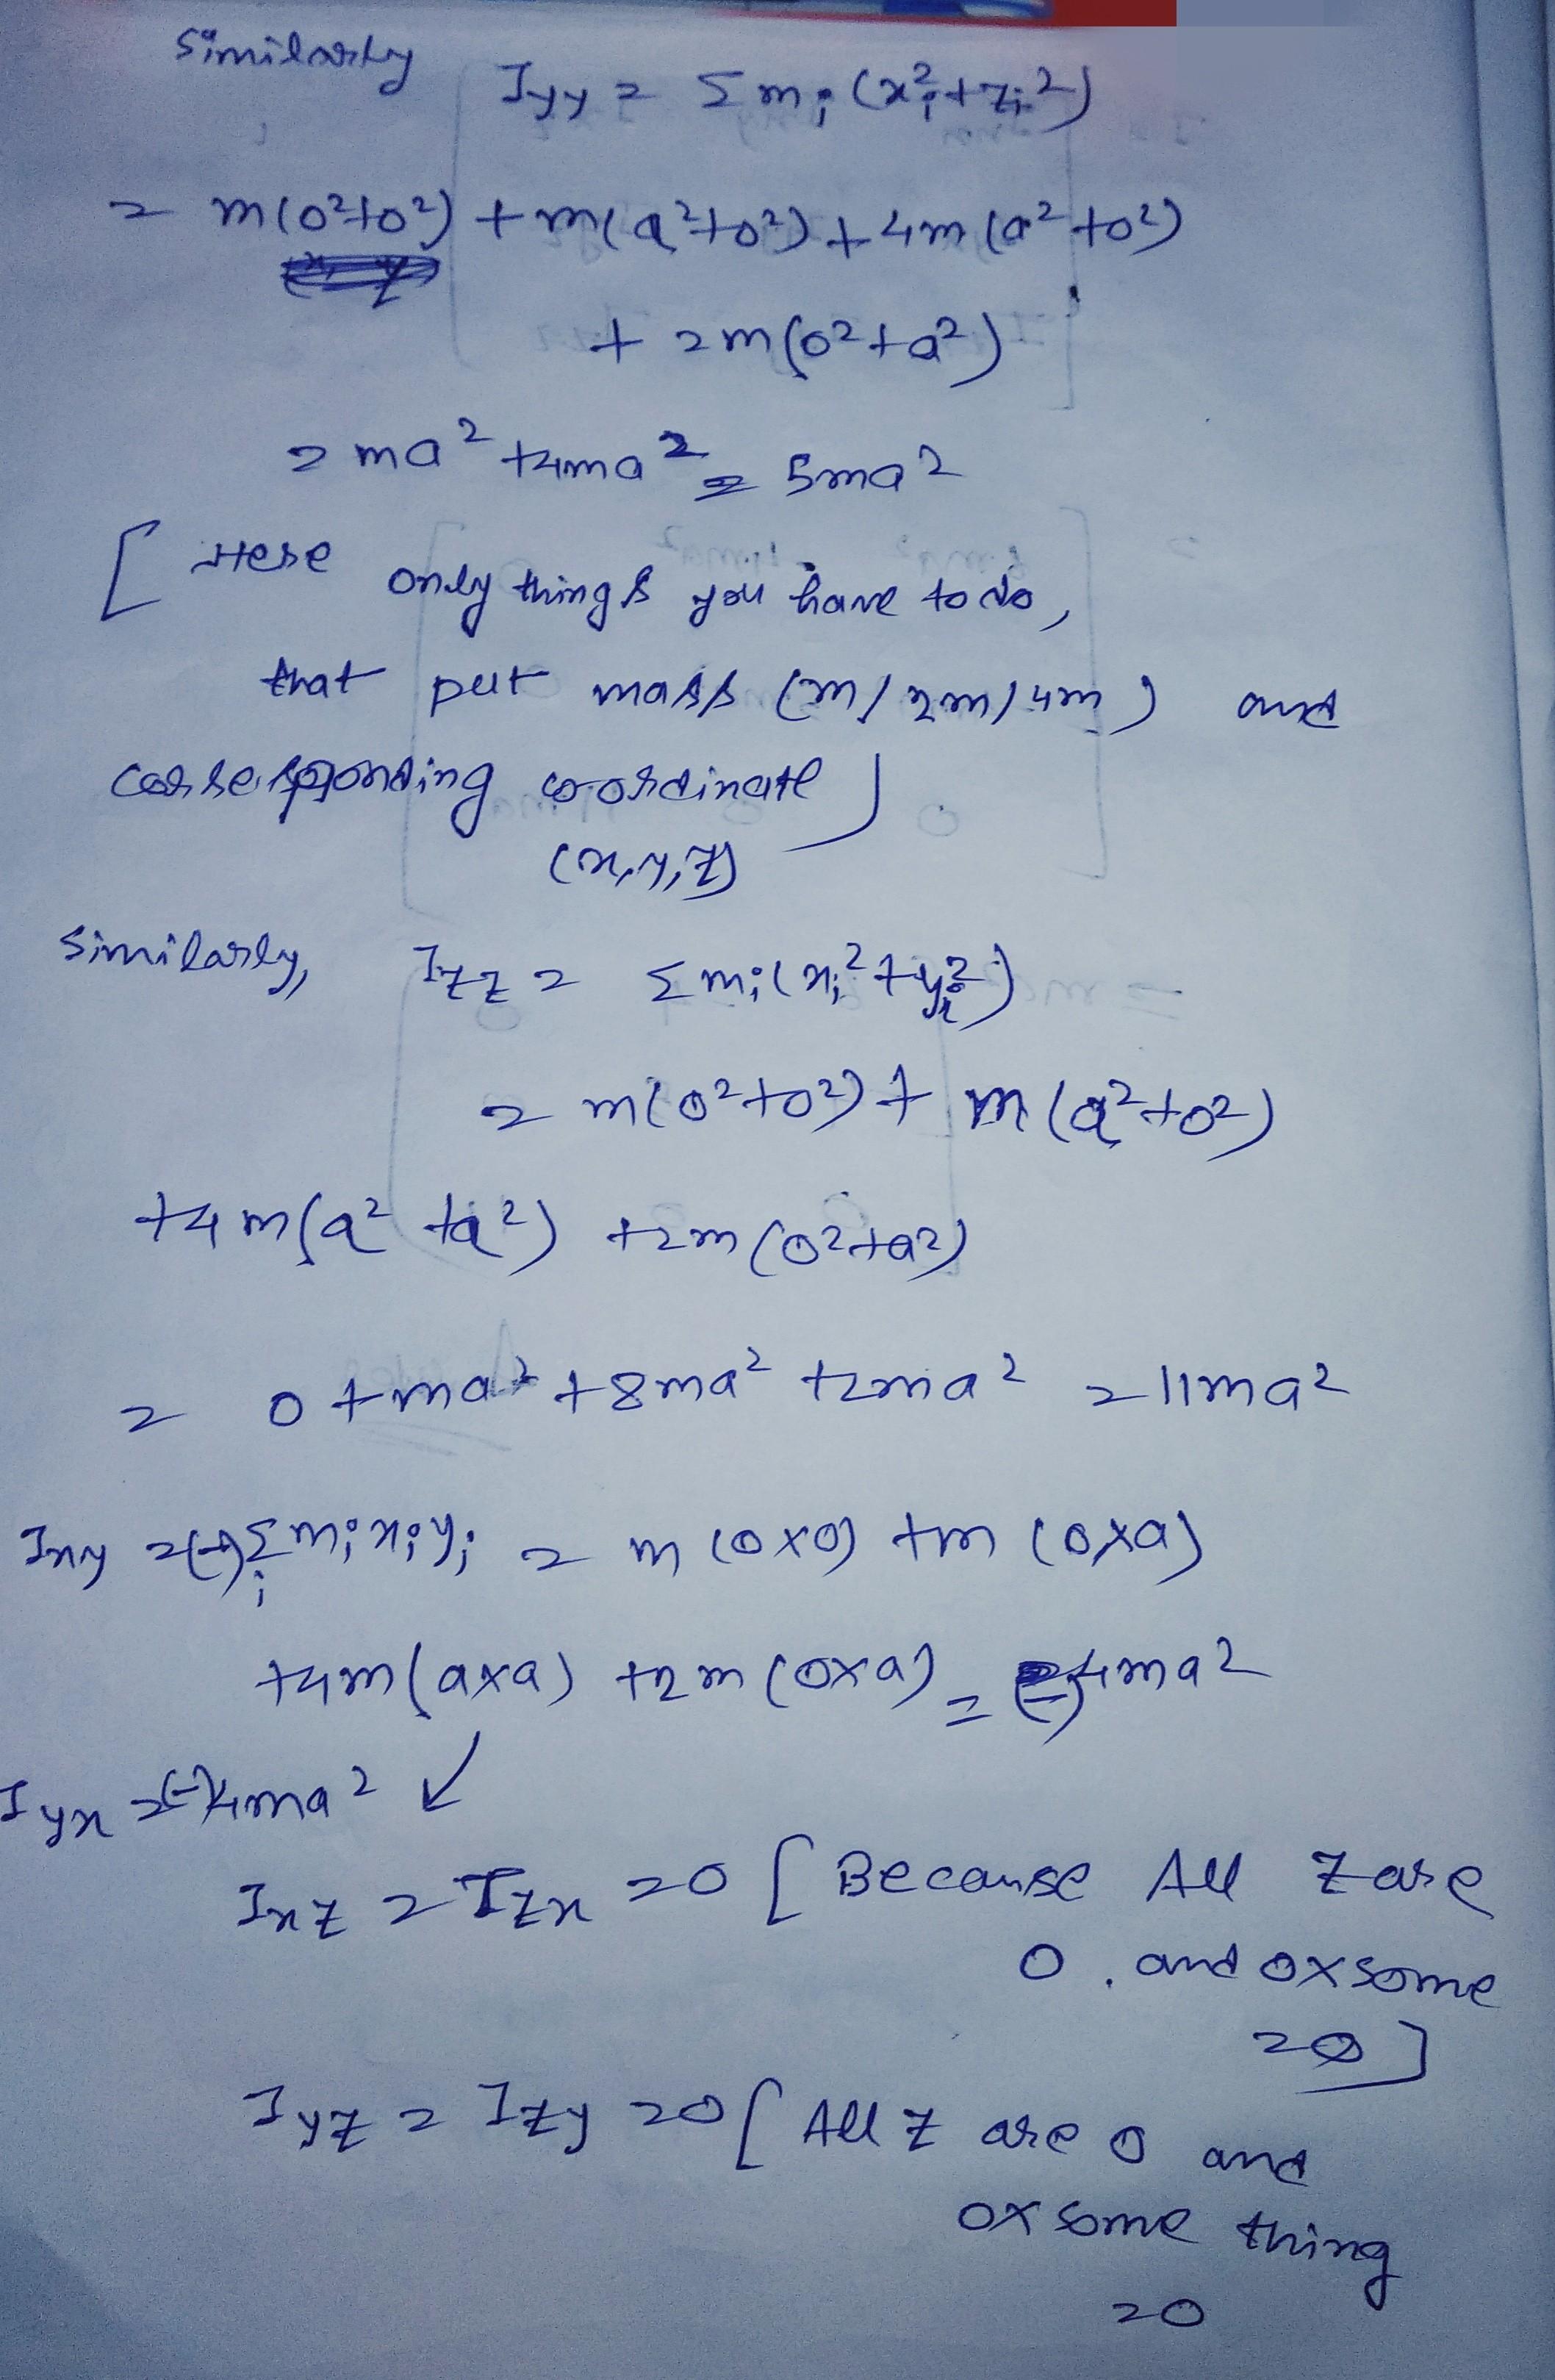 Similarly Iyy = Σ mi (xi²+zi²)
= m(0²+0²) + m(a²+0²) + 4m(a²+0²)
+ 2m(0²+a²)
= ma² +4ma² = 5ma²
[ Here only things you have to do,
that put mass (m/2m/4m) and
corresponding coordinate ]
(x,y,z)
Similarly, Izz = Σ mi(xi²+yi²)
= m(0²+0²) + m(a²+0²)
+4m(a²+a²) +2m(0²+a²)
= 0 + ma² +8ma² +2ma² = 11ma²
Ixy = (-)Σi mi xi yi = m(0x0) +m(0xa)
+4m(axa) +2m(0xa) = (-)4ma²
Iyx = (-)4ma² ↙
Ixz = Izx =0 [ Because All z are
0. and 0x some
=0 ]
Iyz = Izy =0 [ All z are 0 and
0x some thing
=0